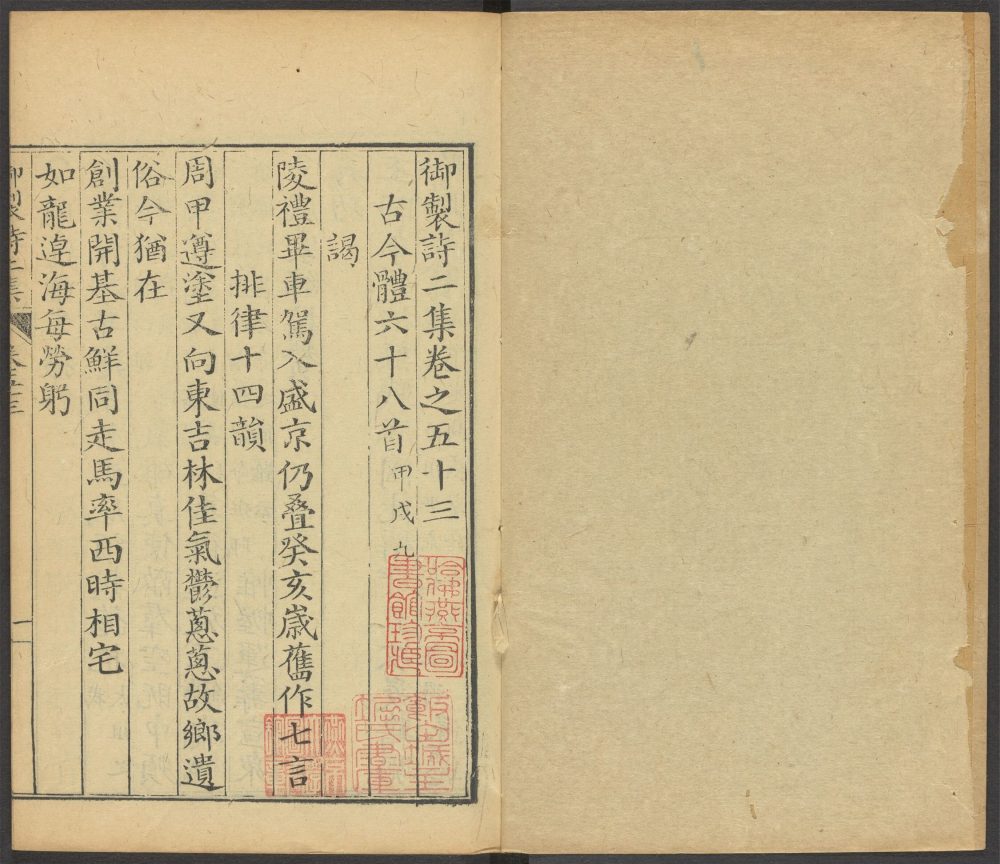 御製詩二集卷之五十三
古今體六十八首甲戌九
謁
陵禮畢車駕入盛京仍叠癸亥歲舊作七言
排律十四韻
周甲遵塗又向東吉林佳氣鬱蔥蔥故鄉遺
俗今猶在
創業開基古鮮同走馬率西時相宅
如龍遑海每勞躬
御製詩二集
哈佛燕京圖
書館珍藏